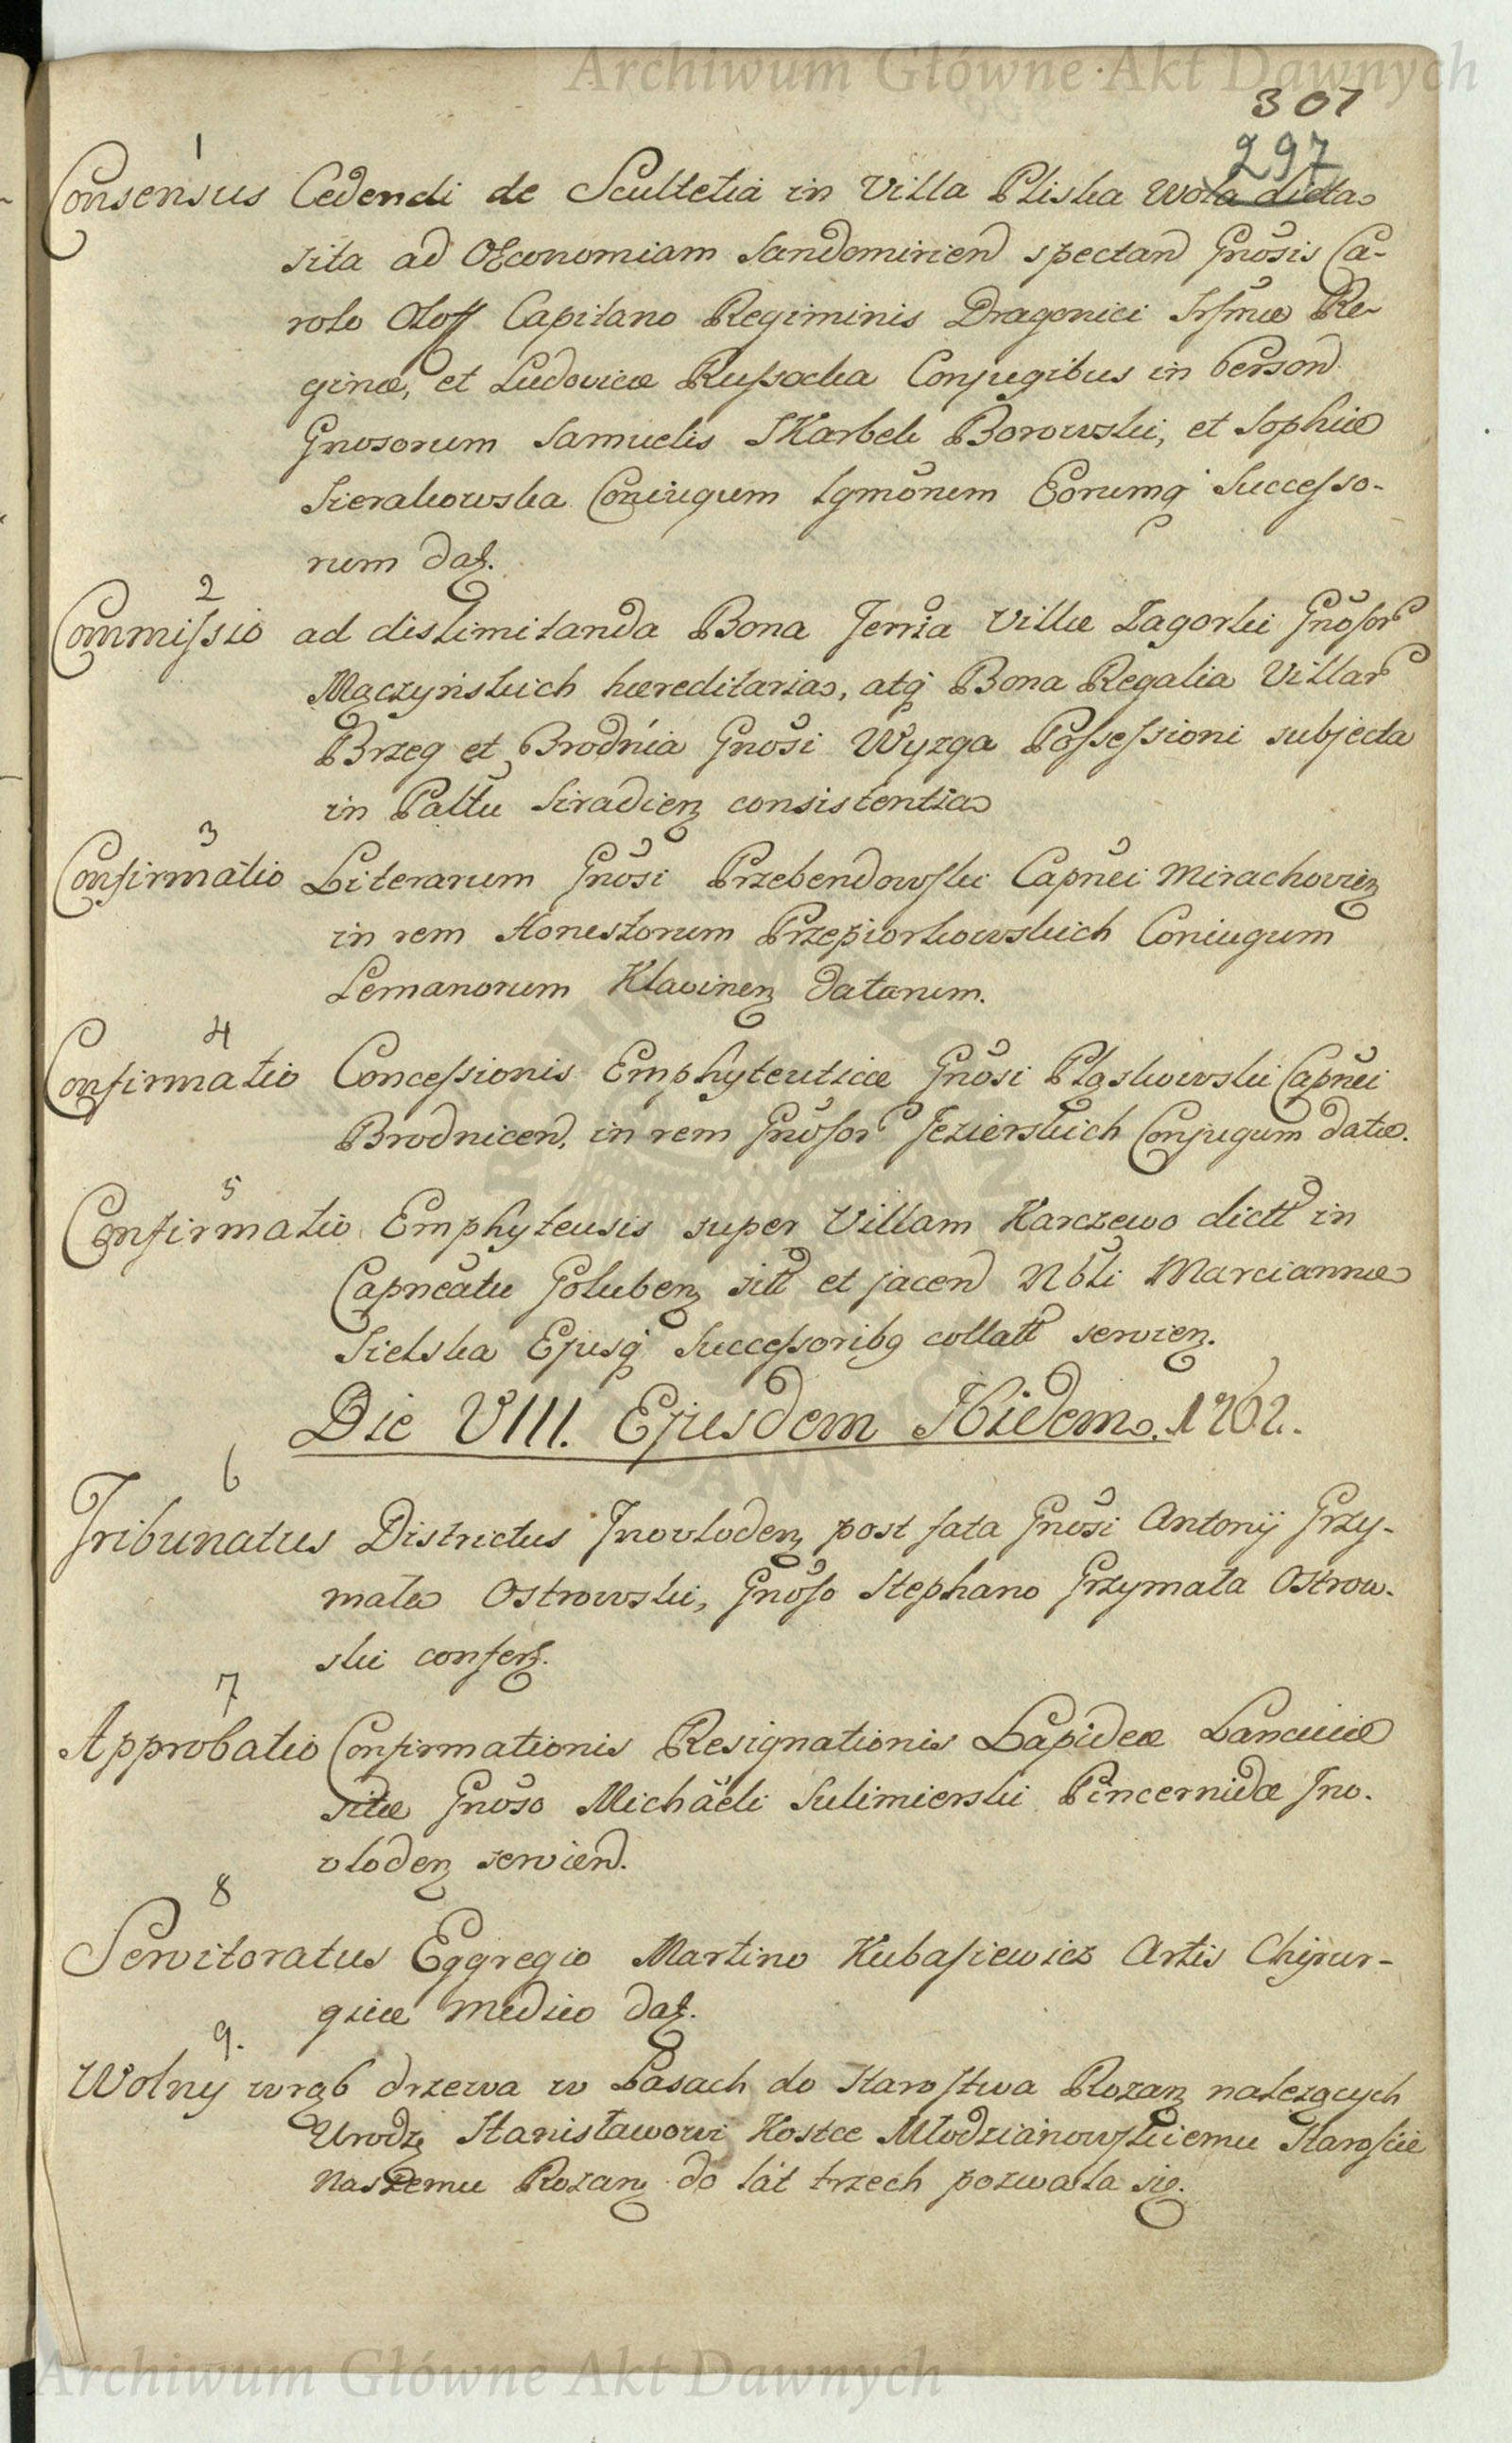 Archiwum Główne Akt Dawnych
301
297
1
Consensus Cedendi de Scultetia in Villa Pliska Wola dicta
sita ad OEconomiam Sandomirien spectan Gnosis Ca-
rolo Oloff Capitano Regiminis Dragonici Srsmæ Re-
ginæ, et Ludovicæ Russocka Conjugibus in Person
Gnosorum Samuelis Skarbek Borowski, et Sophiæ
Sierakowska Coniugum Lgmõnum Eorumq Successo-
rum dat.
2
Commissio ad dislimitanda Bona Terria Villæ Zagorki Gnosor
Mączyńskich hæreditaria, atq Bona Regalia Villar
Brzeg et Brodnia Gnosi Wyzga Possessioni subjecta
in Pallu Siradien consistentia
3
Confirmatio Literarum Gnosi Przebendowski Capnei Mirachovien
in rem Honestorum Przepiorkowskich Coniugum
Lemanorum Klavinen datarum.
4
Confirmatio Concessionis Emphyteuticæ Gnosi Pląskowski Capnei
Brodnicen, in rem Gnosor Jezierskich Conjugum datæ.
5
Confirmatio Emphyteusis super Villam Karczewo dictt in
Capneatu Goluben sitt et jacen Nbli Marciannæ
Sielska Ejusq Successoribq collatt servien.
Die VIII. Ejusdem Ibidem. 1762.
6
Tribunatus Districtus Inovloden post fata Gnosi Antonij Grzy-
mala Ostrowski, Gnoso Stephano Grzymała Ostrow-
ski confert.
7
Approbatio Confirmationis Resignationis Lapideæ Lanciciæ
sitæ Gnoso Michäeli Sulimierski Pincernidæ Ino-
vloden servien.
8
Servitoratus Eggregio Martino Kubasiewicz Artis Chijrur-
gicæ Medico dat.
9.
Wolny wrąb drzewa w Lasach do Starostwa Rozan nalezących
Urodz Stanisławowi Kostce Młodzianowskiemu Staroscie
naszemu Rozan do lát trzech pozwala się.
Archiwum Główne Akt Dawnych